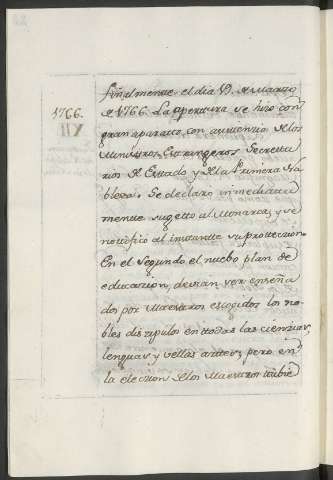 1766.
finalmente el dia 13. de Marzo
de 1766. La apertura se hizo con
gran aparato, con asistencia de los
Ministros, Estrangeros, Secreta
rios de Estado y de la Primera No
bleza. Se declaro inmediata
mente sugetto al Monarca, y se
notifico al instante su proteccion.
En el Segundo el nuebo plan de
educazion, devian ver enseña
dos por Maestros escogidos los no
bles discipulos en todas las cienzias,
lenguas y vellas artes; pero en
la eleccion de los Maestros tubie